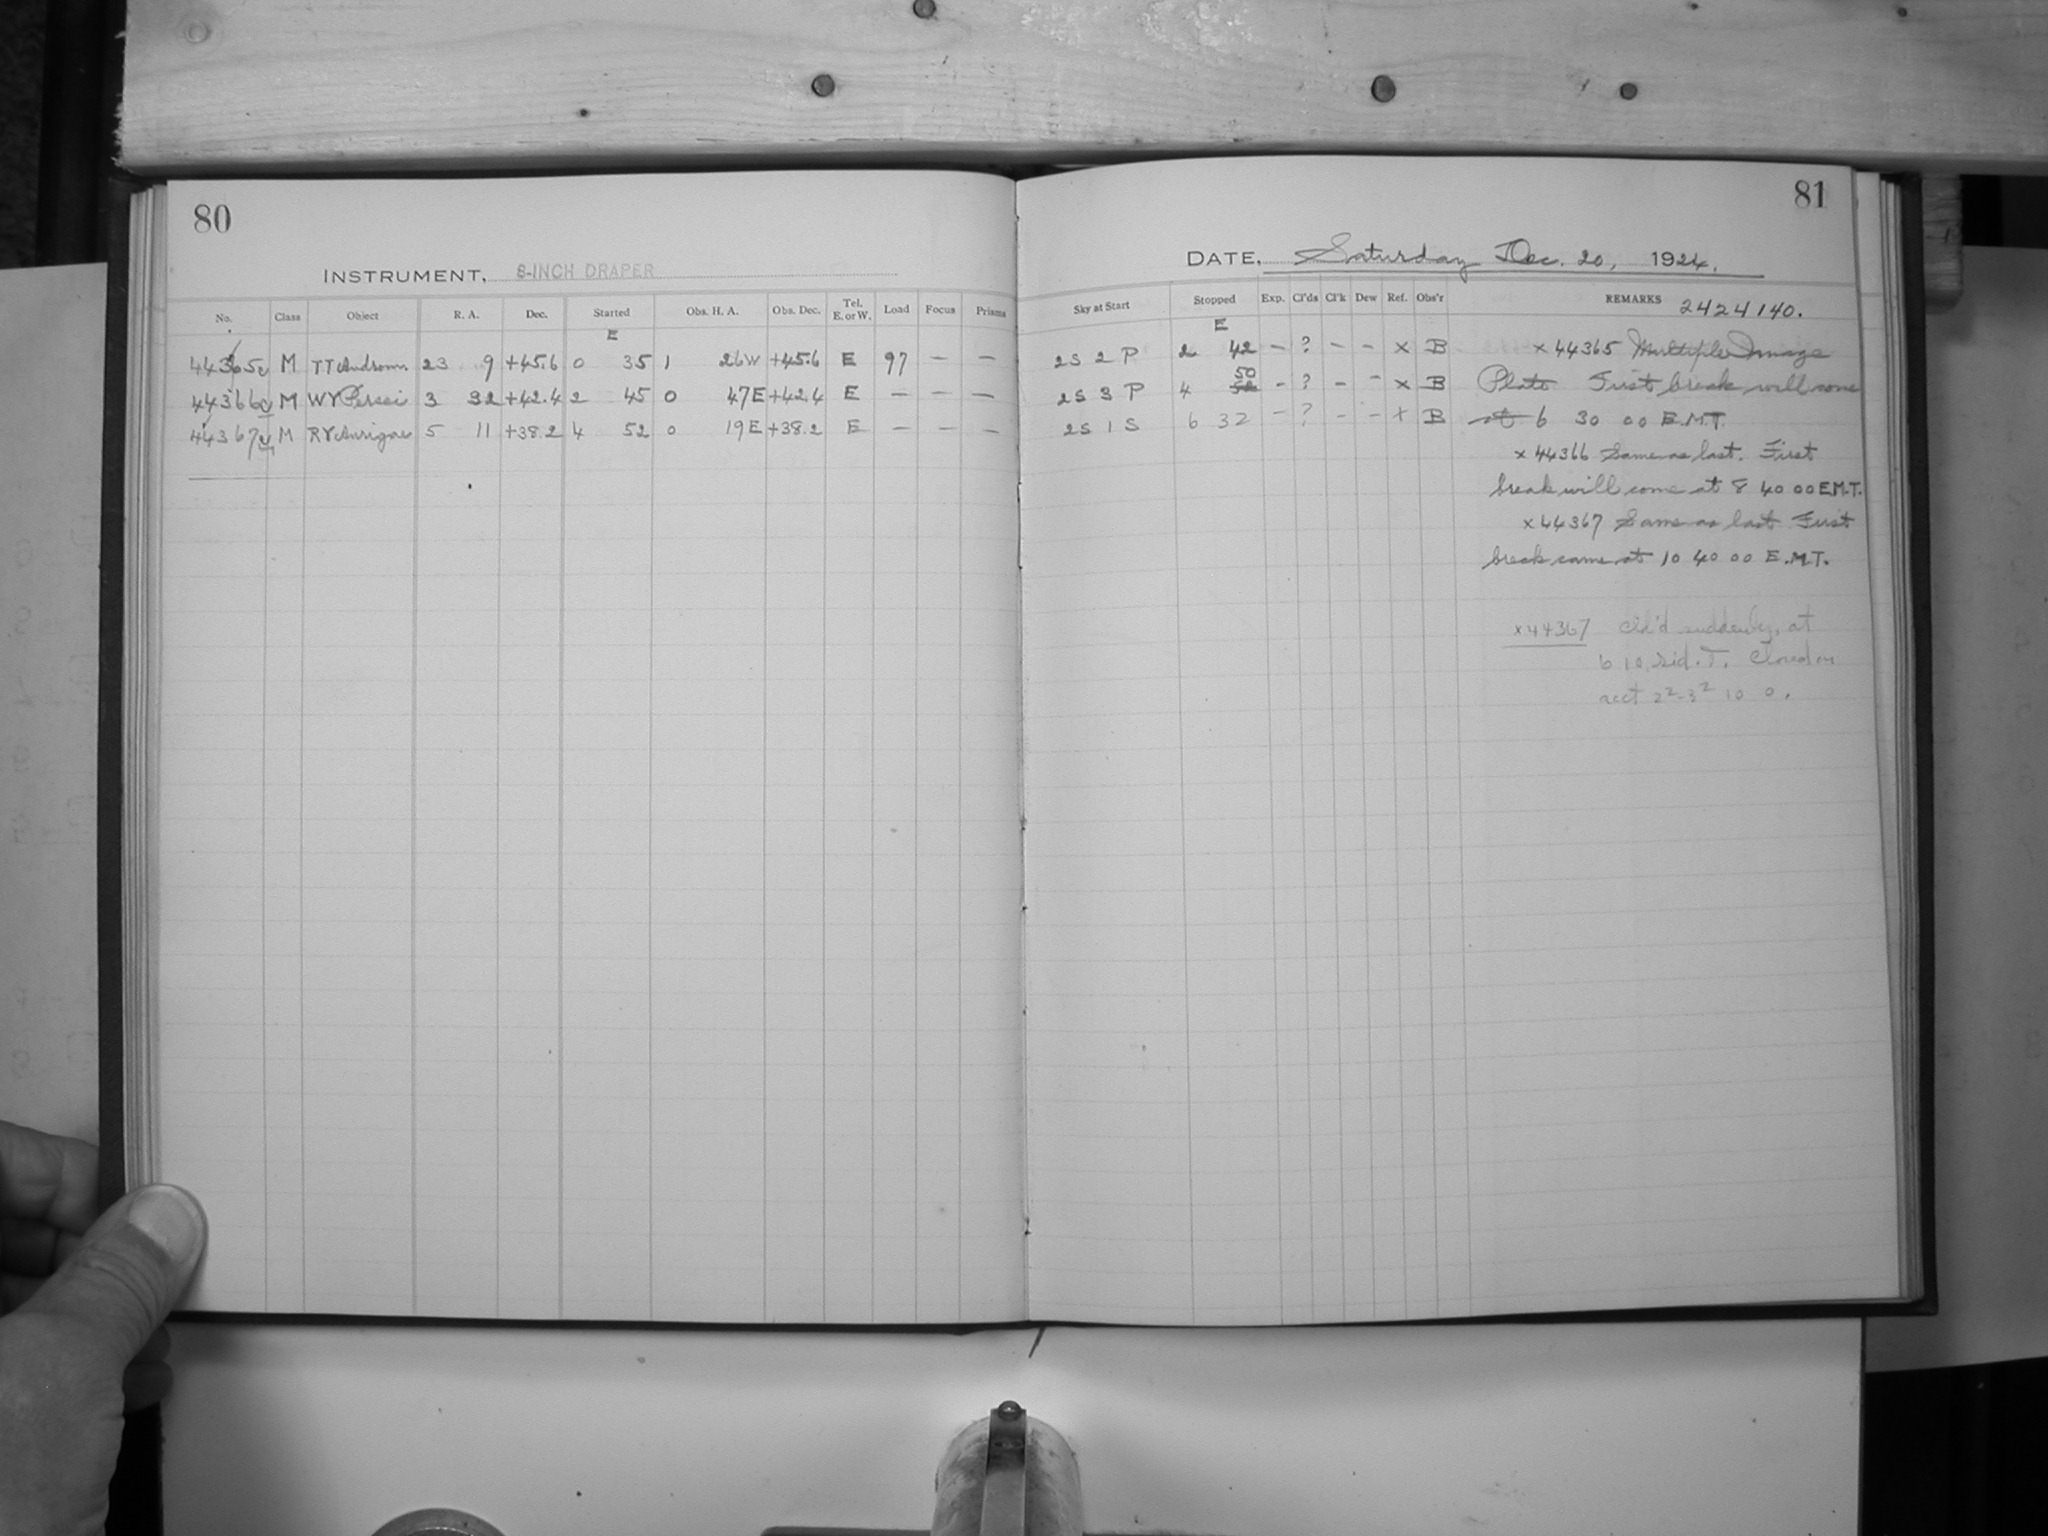 80
INSTRUMENT, 8-INCH DRAPER
No. Class Object R. A. Dec. Started Obs. H. A. Obs. Dec. Tel. E. or W. Load Focus Prisms
E
44365 M TT Androm. 23 9 +45.6 0 35 1 26W +45.6 E 97 – –
44366 M WY Persei 3 32 +42.4 2 45 0 47E +42.4 E – – –
44367 M RY Aurigae 5 11 +38.2 4 52 0 19E +38.2 E – – –
81
DATE, Saturday Dec. 20, 1924.
Sky at Start Stopped Exp. Cl'ds Cl'k Dew Ref. Obs'r REMARKS 2424140.
E
2S 2 P 2 42 – ? – – x B x 44365 Multiple Image
2S 3 P 4 50 – ? – – x B Plate First break will come
2S 1 S 6 32 – ? – – x B at 6 30 00 E.M.T.
x 44366 Same as last. First
break will come at 8 40 00 E.M.T.
x 44367 Same as last First
break came at 10 40 00 E.M.T.
x 44367 Cld'd suddenly, at
6 10 Sid. T. Closed on
acct 2²-3² 10 0.